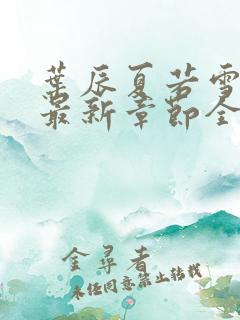 葉辰夏若雪
最新章節全
金尋者
未经同意禁止转载